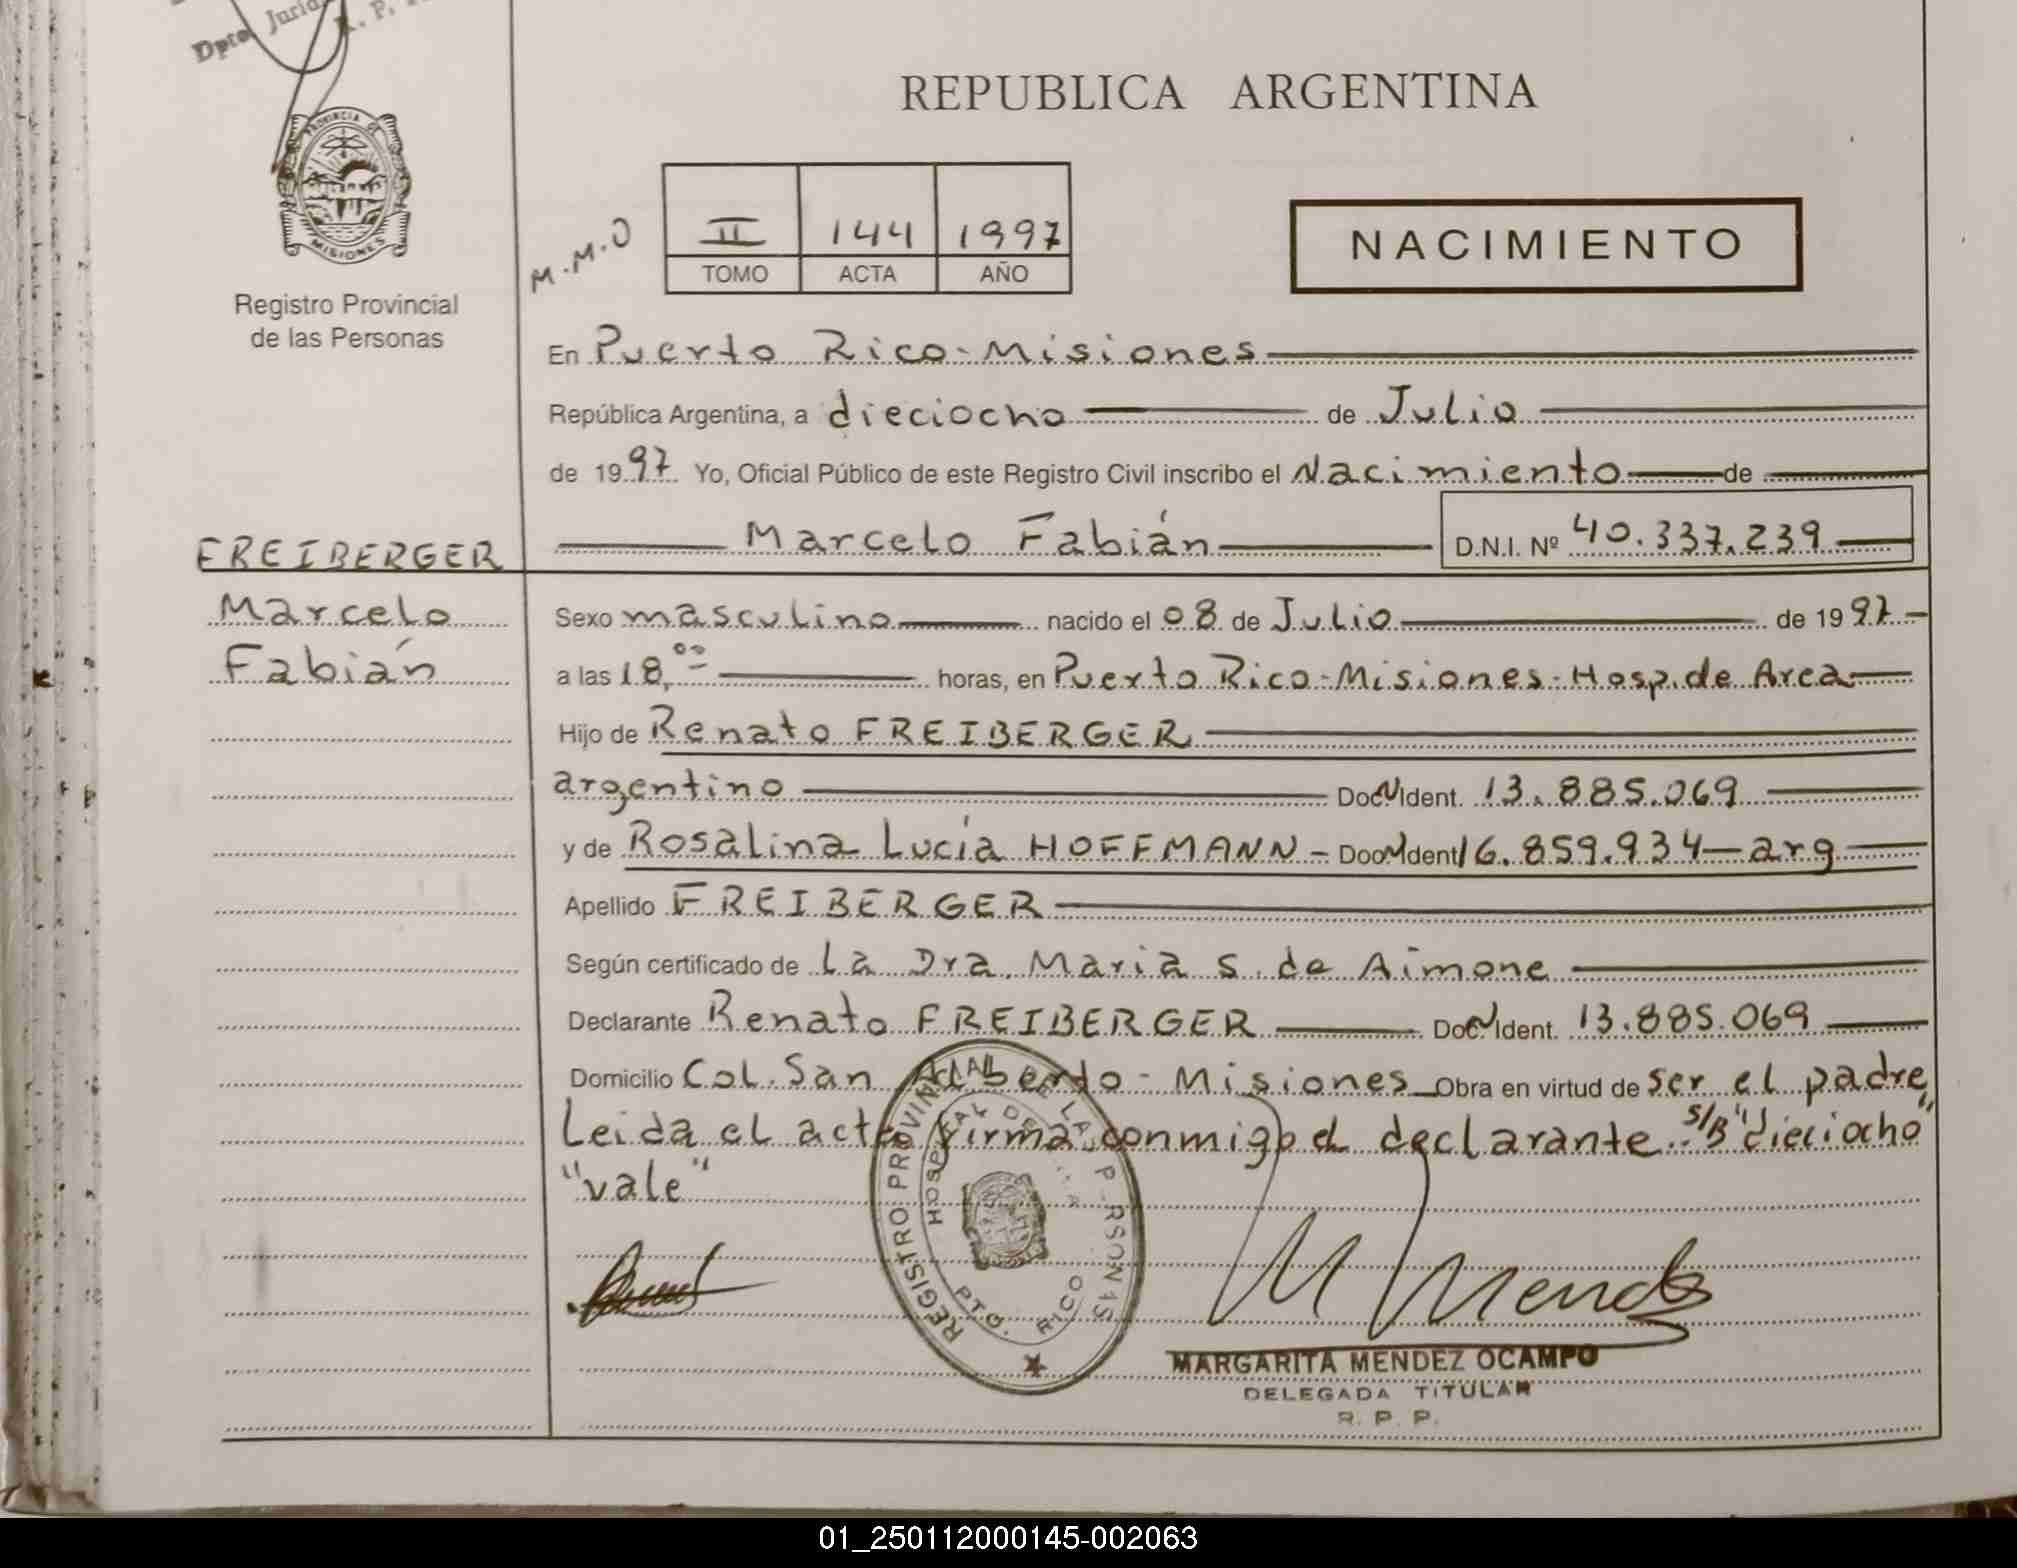 Dpto. Juríd
R. P.
PROVINCIA DE
MISIONES
Registro Provincial
de las Personas
REPUBLICA ARGENTINA
M.M.O
II 144 1997
TOMO ACTA AÑO
NACIMIENTO
En Puerto Rico-Misiones
República Argentina, a dieciocho de Julio
de 1997 Yo, Oficial Público de este Registro Civil inscribo el Nacimiento de
Marcelo Fabián D.N.I. Nº 40.337.239
FREIBERGER
Marcelo
Fabián
Sexo masculino nacido el 08 de Julio de 1997
a las 18,00 horas, en Puerto Rico-Misiones-Hosp.de Area
Hijo de Renato FREIBERGER
argentino Doc. Ident. 13.885.069
y de Rosalina Lucía HOFFMANN - Doc. Ident 16.859.934 - arg
Apellido FREIBERGER
Según certificado de la Dra. Maria S. de Aimone
Declarante Renato FREIBERGER Doc. Ident. 13.885.069
Domicilio Col. San Alberto - Misiones Obra en virtud de ser el padre
Leida el acta firma conmigo el declarante. S/B "dieciocho"
"vale"
REGISTRO PROVINCIAL DE LAS PERSONAS
HOSPITAL DE
PTO. RICO
M Mendez
MARGARITA MENDEZ OCAMPO
DELEGADA TITULAR
R. P. P.
01_250112000145-002063